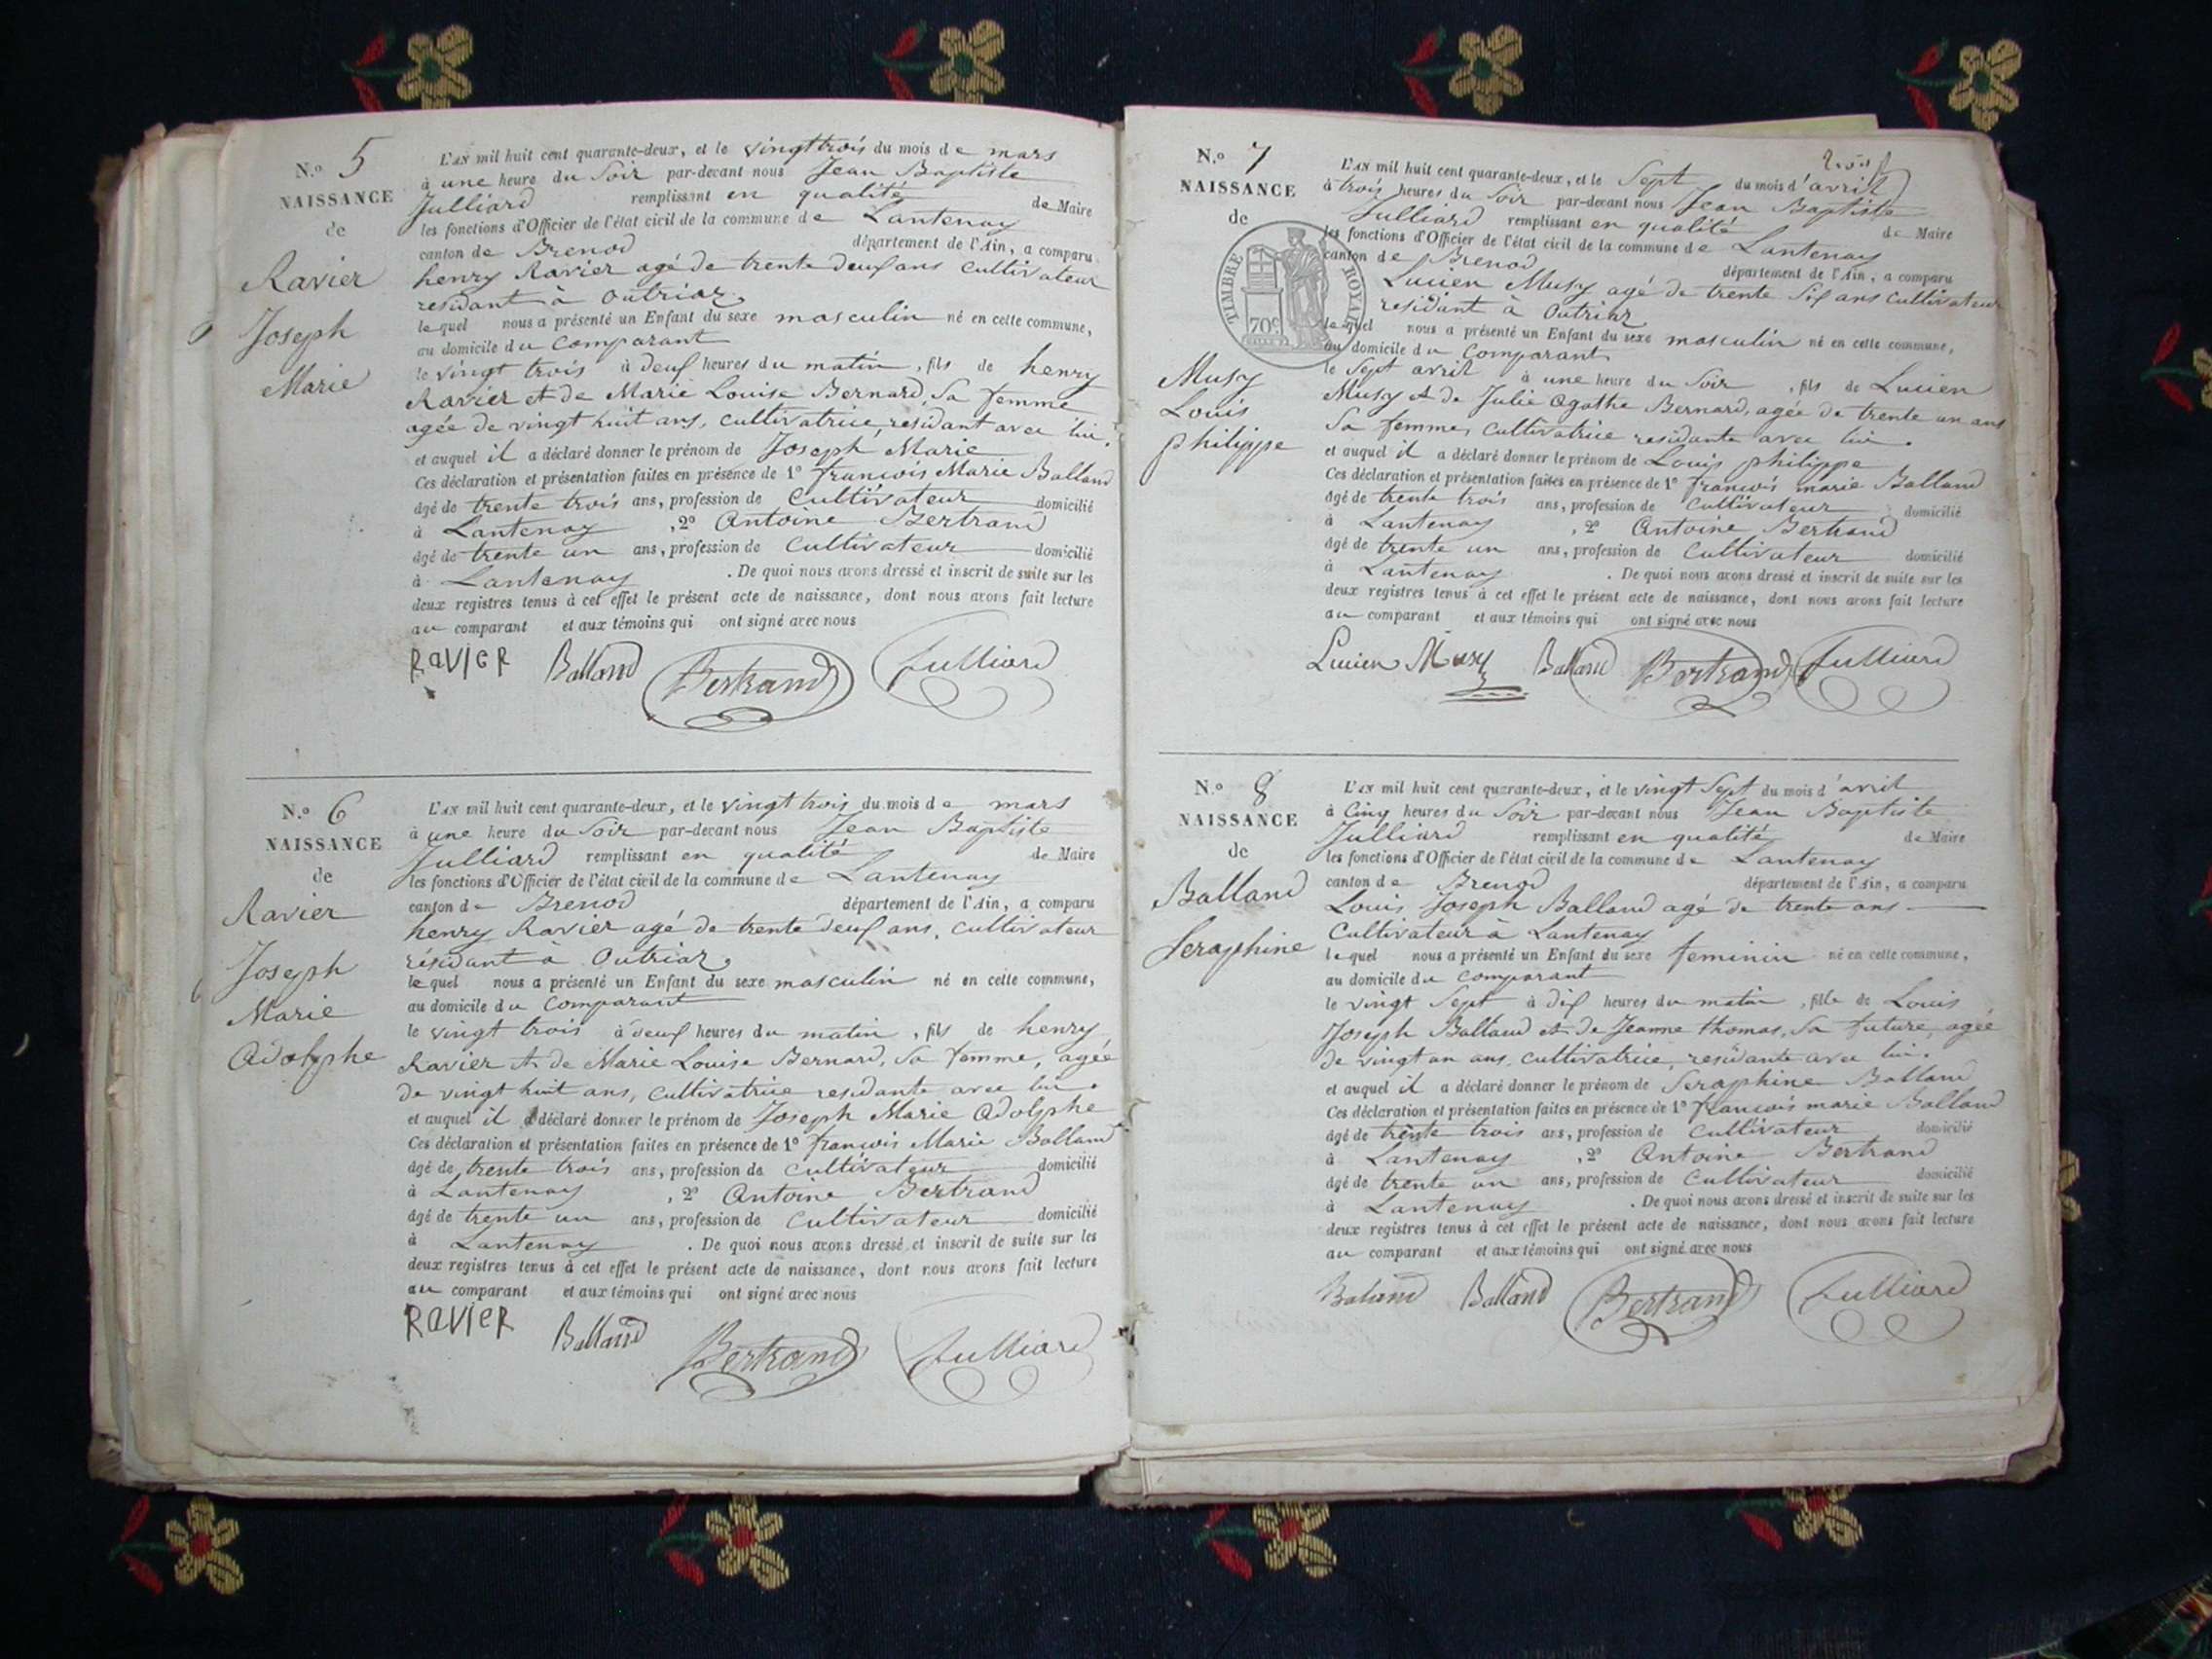 N.º 5
NAISSANCE
de
Ravier
Joseph
Marie
L'AN mil huit cent quarante-deux, et le vingt trois du mois de mars
à une heure du soir par-devant nous Jean Baptiste
Julliard remplissant en qualité de Maire
les fonctions d'Officier de l'état civil de la commune de Lantenay
canton de Brenod département de l'Ain, a comparu
henry Ravier agé de trente deux ans cultivateur
residant à Outriaz
lequel nous a présenté un Enfant du sexe masculin né en cette commune,
au domicile du comparant
le vingt trois à deux heures du matin, fils de henry
Ravier et de Marie Louise Bernard, sa femme
agée de vingt huit ans, cultivatrice, residant avec lui,
et auquel il a déclaré donner le prénom de Joseph Marie
Ces déclaration et présentation faites en présence de 1º francois Marie Balland
âgé de trente trois ans, profession de cultivateur domicilié
à Lantenay, 2º Antoine Bertrand
âgé de trente un ans, profession de cultivateur domicilié
à Lantenay. De quoi nous avons dressé et inscrit de suite sur les
deux registres tenus à cet effet le présent acte de naissance, dont nous avons fait lecture
au comparant et aux témoins qui ont signé avec nous
RavieR Balland Bertrand Julliard
N.º 6
NAISSANCE
de
Ravier
Joseph
Marie
Adolphe
L'AN mil huit cent quarante-deux, et le vingt trois du mois de mars
à une heure du soir par-devant nous Jean Baptiste
Julliard remplissant en qualité de Maire
les fonctions d'Officier de l'état civil de la commune de Lantenay
canton de Brenod département de l'Ain, a comparu
henry Ravier agé de trente deux ans, cultivateur
résidant à Outriaz
lequel nous a présenté un Enfant du sexe masculin né en cette commune,
au domicile du comparant
le vingt trois à deux heures du matin, fils de henry
Ravier et de Marie Louise Bernard, sa femme, agée
de vingt huit ans, cultivatrice residante avec lui.
et auquel il a déclaré donner le prénom de Joseph Marie Adolphe
Ces déclaration et présentation faites en présence de 1º francois Marie Balland
âgé de trente trois ans, profession de cultivateur domicilié
à Lantenay, 2º Antoine Bertrand
âgé de trente un ans, profession de cultivateur domicilié
à Lantenay. De quoi nous avons dressé et inscrit de suite sur les
deux registres tenus à cet effet le présent acte de naissance, dont nous avons fait lecture
au comparant et aux témoins qui ont signé avec nous
RavieR Balland Bertrand Julliard
N.º 7
NAISSANCE
de
TIMBRE ROYAL
70c
Musy
Louis
philippe
L'AN mil huit cent quarante-deux, et le Sept du mois d'avril
à trois heures du soir par-devant nous Jean Baptiste
Julliard remplissant en qualité de Maire
les fonctions d'Officier de l'état civil de la commune de Lantenay
canton de Brenod département de l'Ain, a comparu
Lucien Musy agé de trente six ans cultivateur
residant à Outriaz
lequel nous a présenté un Enfant du sexe masculin né en cette commune,
au domicile du comparant
le Sept avril à une heure du soir, fils de Lucien
Musy et de Julie Agathe Bernard, agée de trente un ans
sa femme, cultivatrice residante avec lui.
et auquel il a déclaré donner le prénom de Louis philippe
Ces déclaration et présentation faites en présence de 1º francois marie Balland
âgé de trente trois ans, profession de cultivateur domicilié
à Lantenay, 2º Antoine Bertrand
âgé de trente un ans, profession de cultivateur domicilié
à Lantenay. De quoi nous avons dressé et inscrit de suite sur les
deux registres tenus à cet effet le présent acte de naissance, dont nous avons fait lecture
au comparant et aux témoins qui ont signé avec nous
Lucien Musy Balland Bertrand Julliard
N.º 8
NAISSANCE
de
Balland
Seraphine
L'AN mil huit cent quarante-deux, et le vingt Sept du mois d'avril
à Cinq heures du soir par-devant nous Jean Baptiste
Julliard remplissant en qualité de Maire
les fonctions d'Officier de l'état civil de la commune de Lantenay
canton de Brenod département de l'Ain, a comparu
Louis Joseph Balland agé de trente ans
Cultivateur à Lantenay
lequel nous a présenté un Enfant du sexe feminin né en cette commune,
au domicile du comparant
le vingt Sept à dix heures du matin, fille de Louis
Joseph Balland et de Jeanne thomas, sa future, agée
de vingt un ans, cultivatrice, residante avec lui.
et auquel il a déclaré donner le prénom de Seraphine Balland
Ces déclaration et présentation faites en présence de 1º francois marie Balland
âgé de trente trois ans, profession de cultivateur domicilié
à Lantenay, 2º Antoine Bertrand
âgé de trente un ans, profession de cultivateur domicilié
à Lantenay. De quoi nous avons dressé et inscrit de suite sur les
deux registres tenus à cet effet le présent acte de naissance, dont nous avons fait lecture
au comparant et aux témoins qui ont signé avec nous
Baland Balland Bertrand Julliard